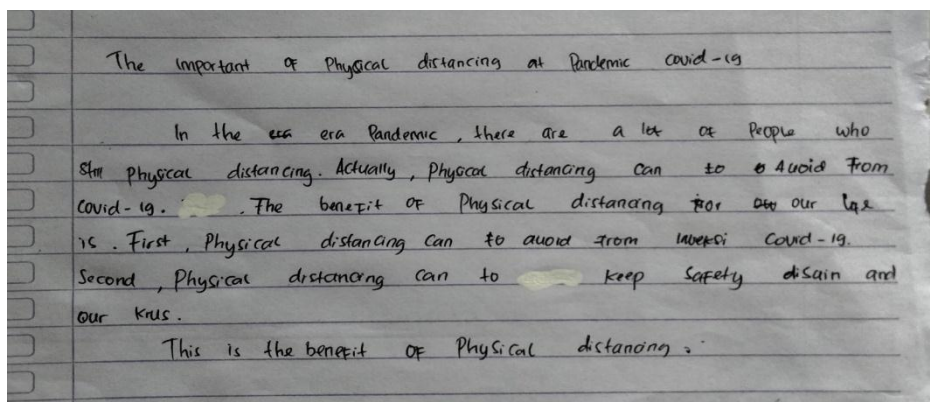 The important of Physical distancing at Pandemic covid-19
In the era Pandemic, there are a lot of People who
Physical distancing. Actually, Physical distancing can to Avoid From
covid-19. . The beneFit of Physical distancing For our
is. First, Physical distancing can to avoid From Covid-19.
Second, Physical distancing can to keep saFety and
our
This is the beneFit oF Physical distancing.